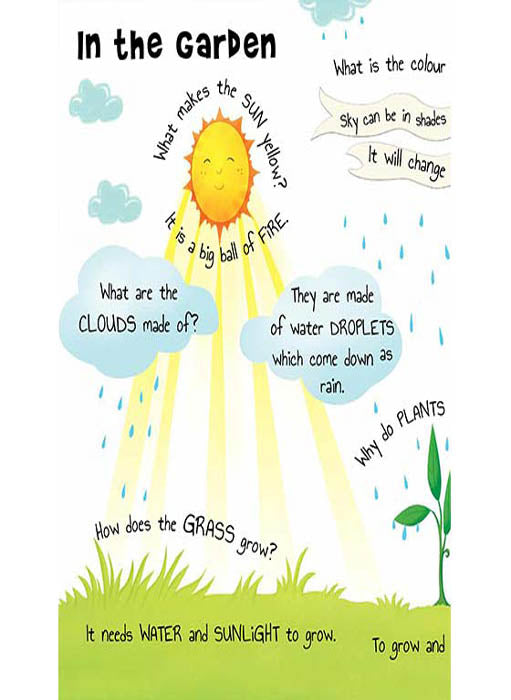 In the Garden
What makes the SUN yellow?
It is a big ball of FIRE.
What is the colour
Sky can be in shades
It will change
What are the
CLOUDS made of?
They are made
of water DROPLETS
which come down as
rain.
Why do PLANTS
How does the GRASS grow?
It needs WATER and SUNLIGHT to grow.
To grow and